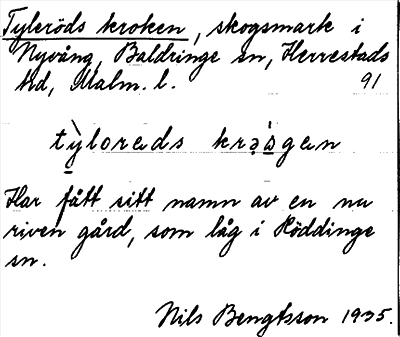 Tyleröds kroken, skogsmark i
Nyvång, Baldringe sn, Herrestads
hd, Malm. l. 91
tỳloreds krə̀ågen
Har fått sitt namn av en nu
riven gård, som låg i Röddinge
sn.
Nils Bengtsson 1935.